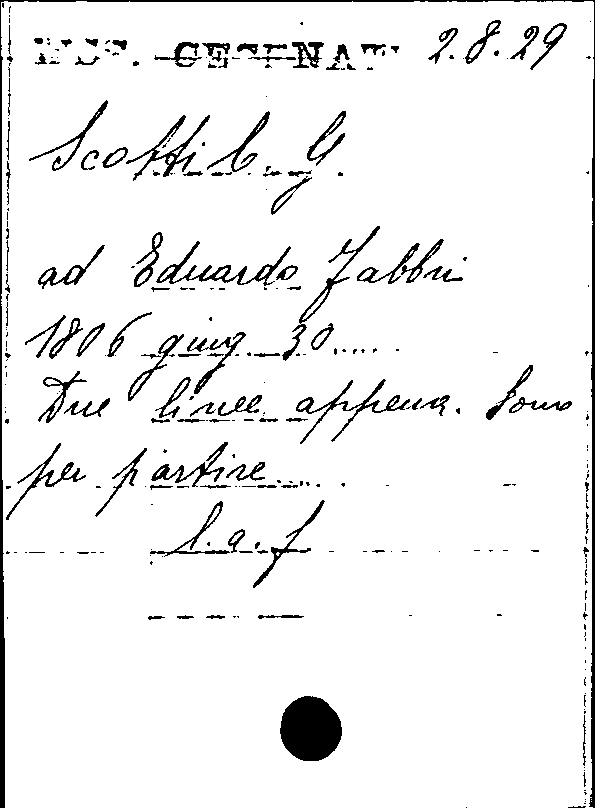 MSS. CESENATI 2.8.29
Scotti C. G.
ad Eduardo Fabbri
1806 giug 30
Due linee appena. Sono
per partire
l.a.f